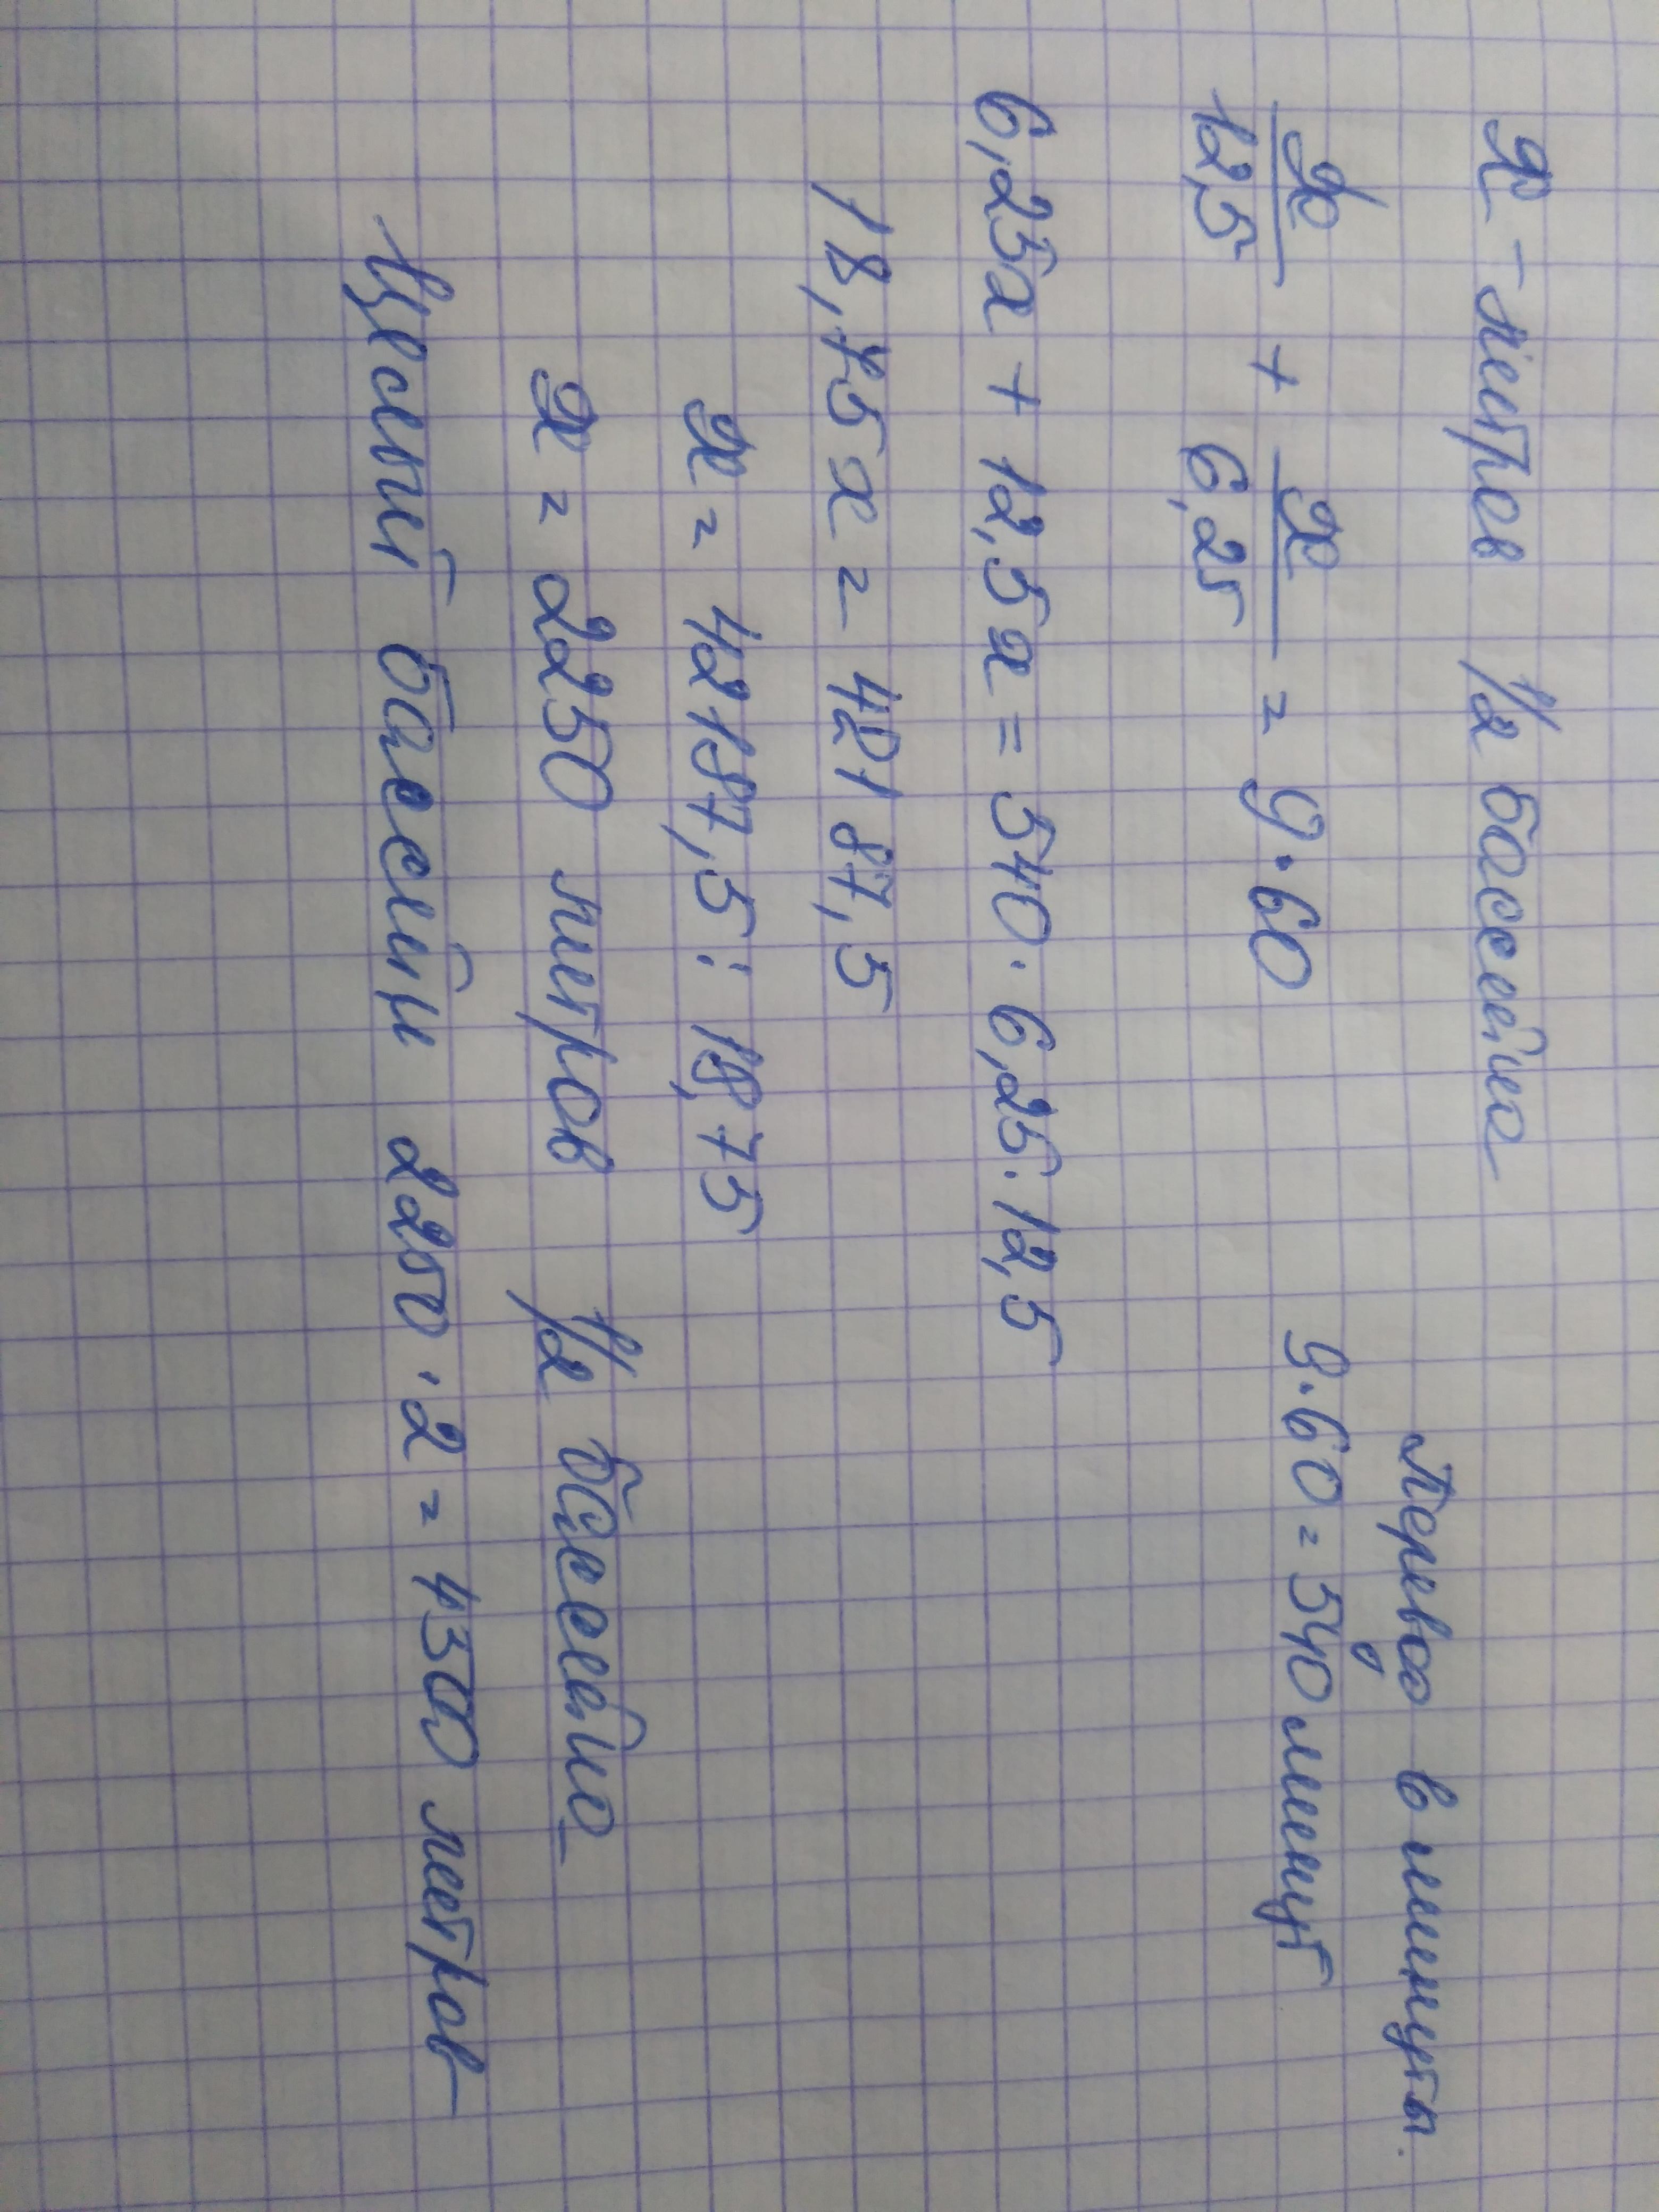 x - литров 1/2 бассейна
Перевод в минуты.
x/12,5 + x/6,25 = 9·60
9·60 = 540 минут
6,25x + 12,5x = 540·6,25·12,5
18,75x = 42187,5
x = 42187,5 : 18,75
x = 2250 литров 1/2 бассейна
Целый бассейн 2250·2 = 4500 литров